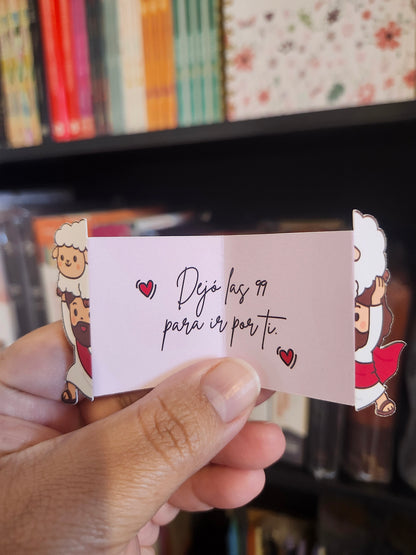 Dejó las 99
para ir por ti.